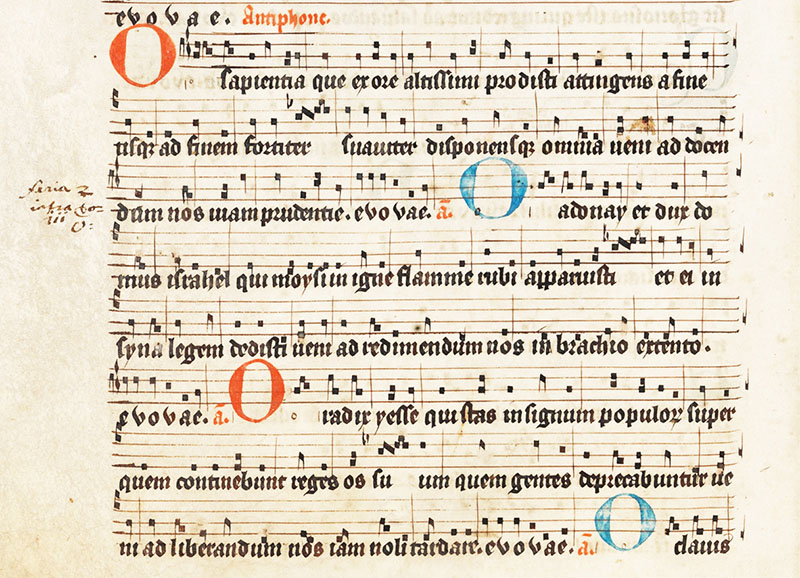 evovae. Antiphone.
O sapientia que ex ore altissimi prodisti attingens a fine
usqz ad finem fortiter suaviter disponensqz omnia veni ad docen
dum nos viam prudentie. evovae. a. O adonay et dux do
mus israhel qui moysi in igne flamme rubi apparuisti et ei in
syna legem dedisti veni ad redimendum nos in brachio extento.
evovae. a. O radix yesse qui stas in signum populoꝝ super
quem continebunt reges os suum quem gentes deprecabuntur ve
ni ad liberandum nos iam noli tardare. evovae. a. O clavis
feria 2
infra
iii
O: